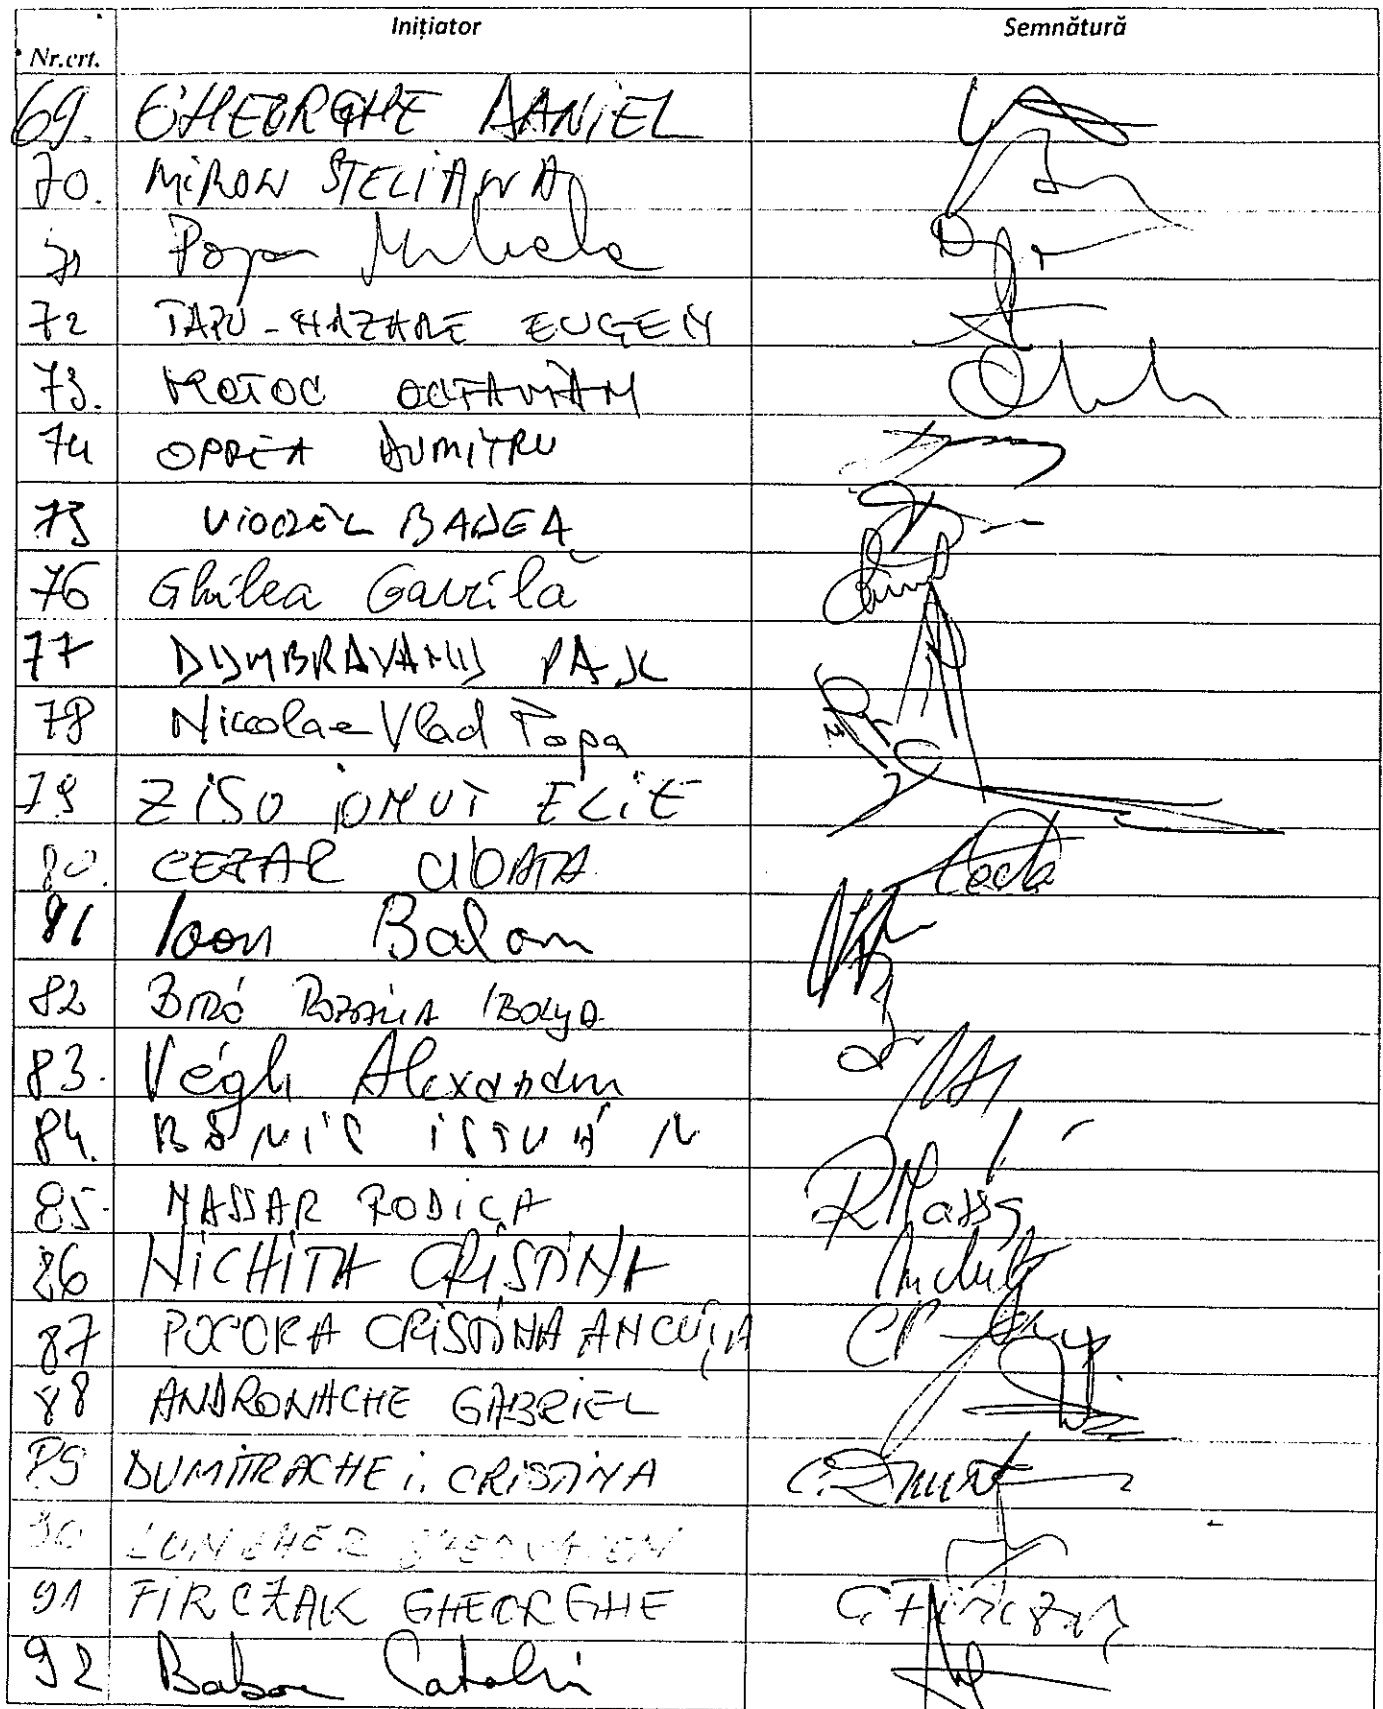 Nr.crt. Inițiator Semnătură
69. GHEORGHE DANIEL
70. MIRON STELIANA
71 Popa Mihaela
72 TAPU-NAZARE EUGEN
73. MOTOC OCTAVIAN
74 OPREA DUMITRU
75 VIOREL BADEA
76 Ghilea Gavrilă
77 DUMBRAVANU PAUL
78 Nicolae Vlad Popa
79 ZISU IONUT ELIE
80. CEZAR CIOATA
81 Ioan Balan
82 BIRÓ ROZALIA IBOLYA
83. Végh Alexandru
84. BÓNIS ISTVÁN
85. NASSAR RODICA
86 NICHITA CRISTINA
87 POCORA CRISTINA ANCUȚA
88 ANDRONACHE GABRIEL
89 DUMITRACHE I. CRISTINA
90 LONCHER
91 FIRCZAK GHEORGHE G Firczak
92 Catalin